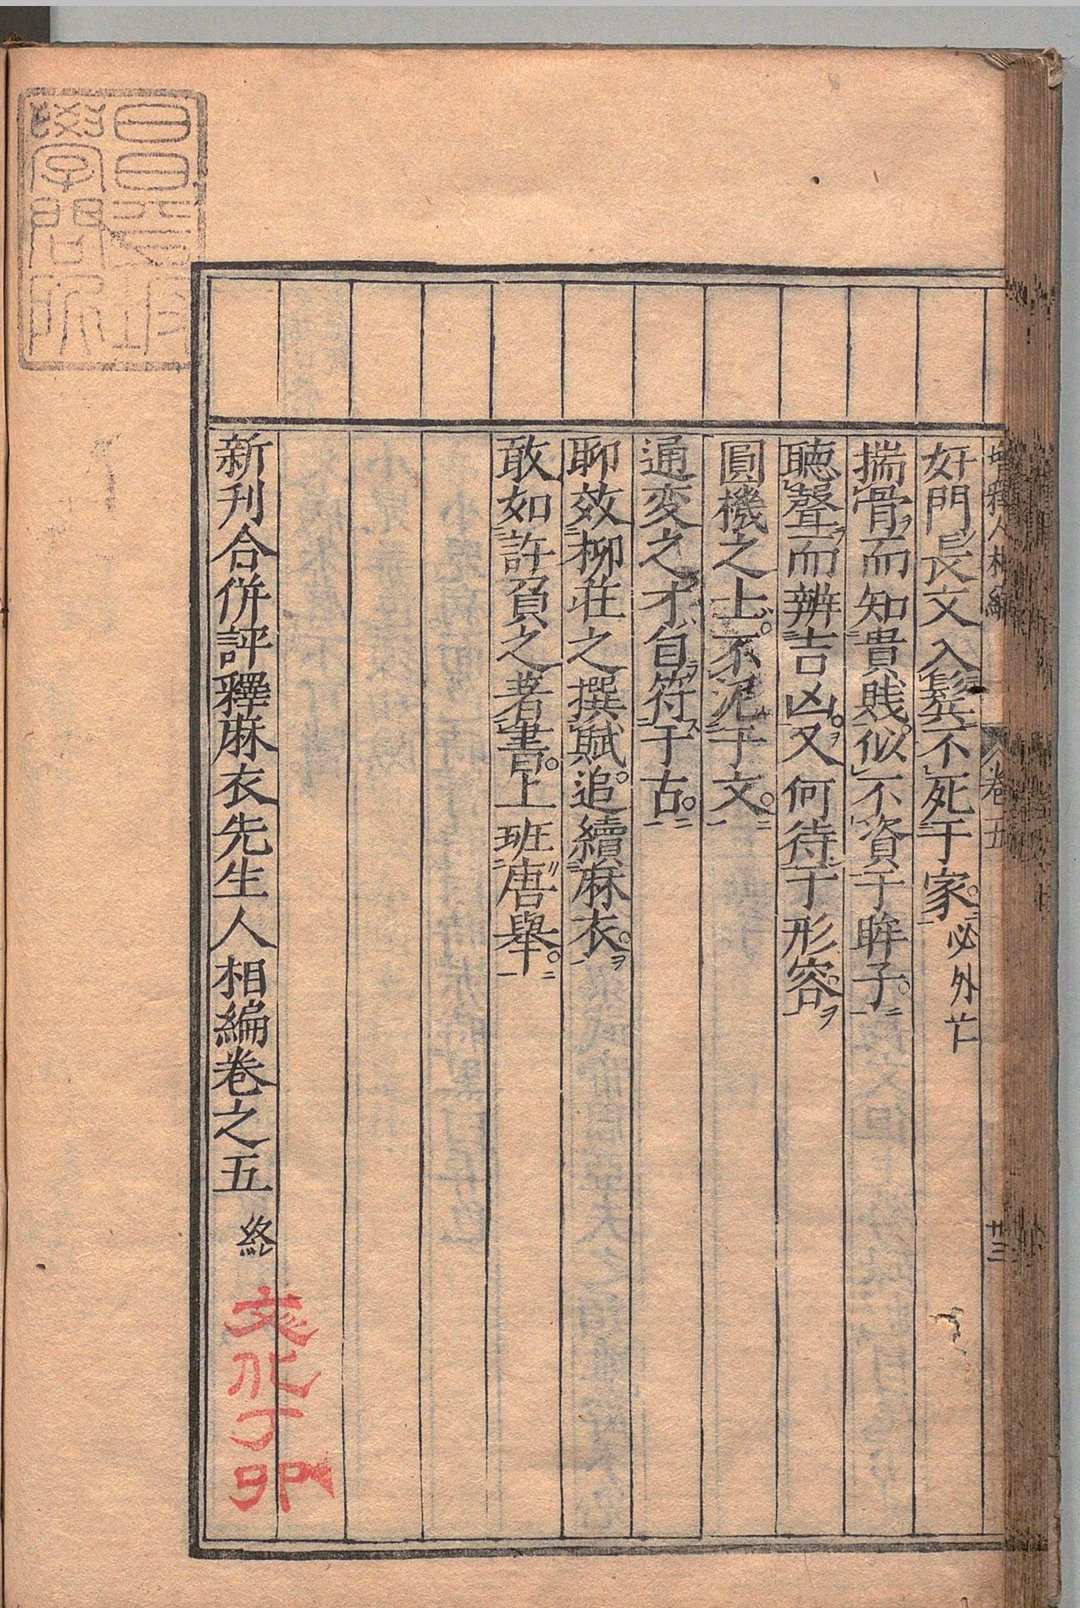 奸門長文入鬓不死于家必外亡
揣骨而知貴賎似不資于眸子
聽聲而辨吉凶又何待于形容
圓機之士不泥于文
通変之才自符于古
聊效柳荘之撰賦追續麻衣
敢如許負之著書上班唐舉
新刊合併評釋麻衣先生人相編巻之五 終
文化丁卯
昌平坂
學問所
巻五
廿三